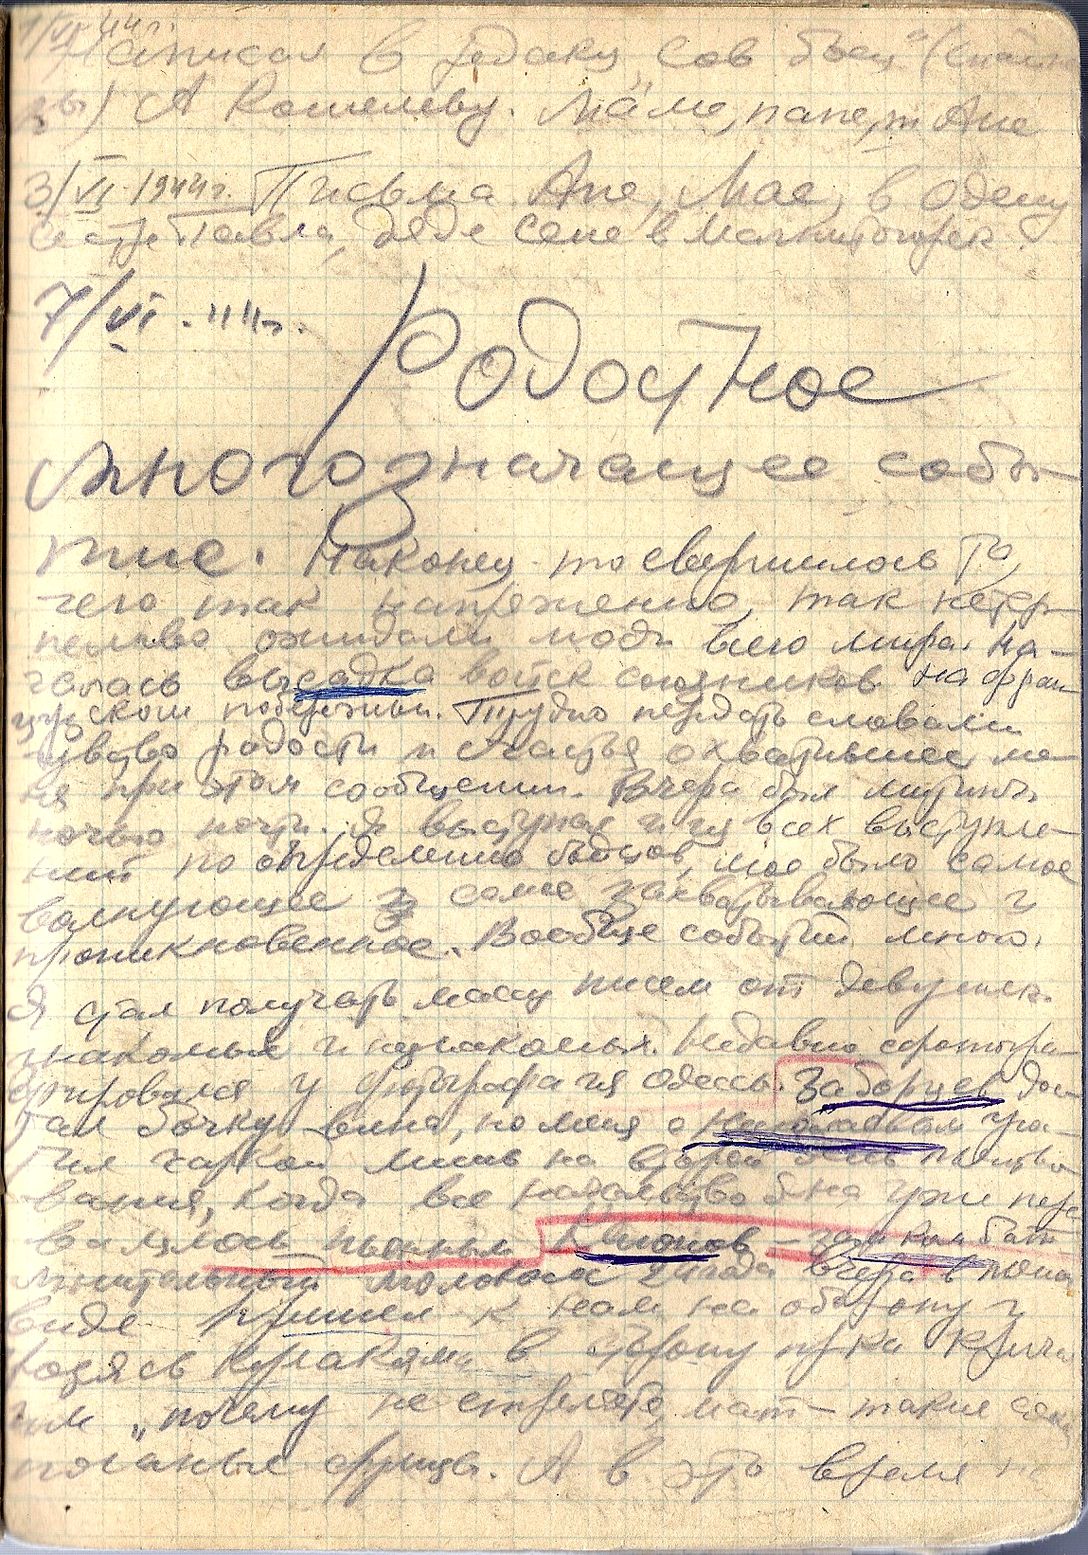 1/VI 44 г.
Написал в редакц „Сов боец“
А Кошелеву. Маме, папе, т Ане
3/VI 1944 г. Письма Ане, Мае, в Одессу
сестре Павла, дяде Сене в Магнитогорск.
7/VI. 44 г.
Радостное
многозначащее собы-
тие. Наконец-то свершилось то,
чего так напряженно, так нетер-
пеливо ожидали люди всего мира. На-
чалась высадка войск союзников на фран
цузском побережьи. Трудно передать словами
чувство радости и счастья охватившее ме-
ня при этом сообщении. Вчера был митинг
ночью почти. Я выступал и из всех выступле-
ний по определению бойцов, мое было самое
волнующее и самое захватывающее и
проникновенное. Вообще событий много.
Я стал получать массу писем от девушек.
знакомых и незнакомых. Недавно сфотогра-
фировался у фотографа из Одессы. Заборцев дос-
тал бочку вина, но меня
чаркой лишь на второй день
когда все начальство б-на уже пере
валялось пьяным Клюнов – зам комбат
молокосос 24 года вчера в
виде пришел к нам на оборону и
кулаками в сторону пр-ка крича
„почему не стреляете, мат – такие
поганые фрицы. А в это время